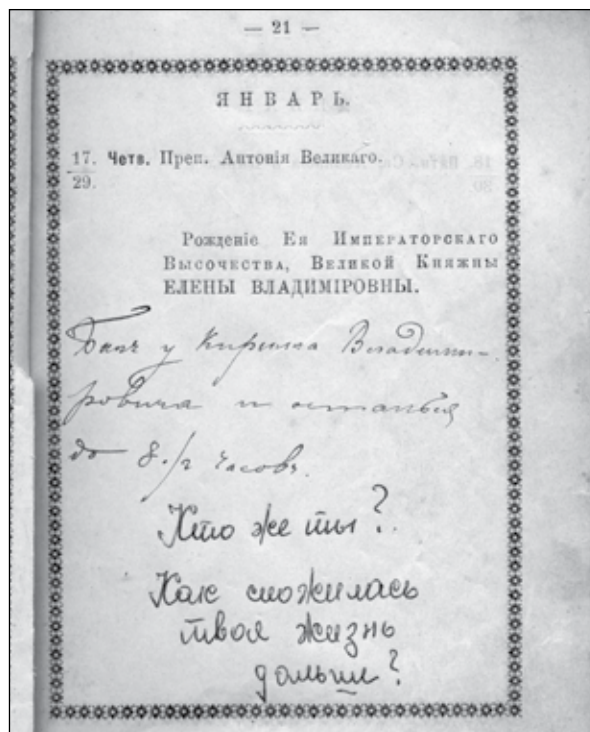 — 21 —
ЯНВАРЬ.
17. Четв. Преп. Антонія Великаго.
29.
Рожденіе Ея Императорскаго
Высочества, Великой Княжны
ЕЛЕНЫ ВЛАДИМІРОВНЫ.
у Кирилла Владими-
ровича и остался
до 8 1/2 часовъ.
Кто же ты?
Как сложилась
твоя жизнь
дальше?